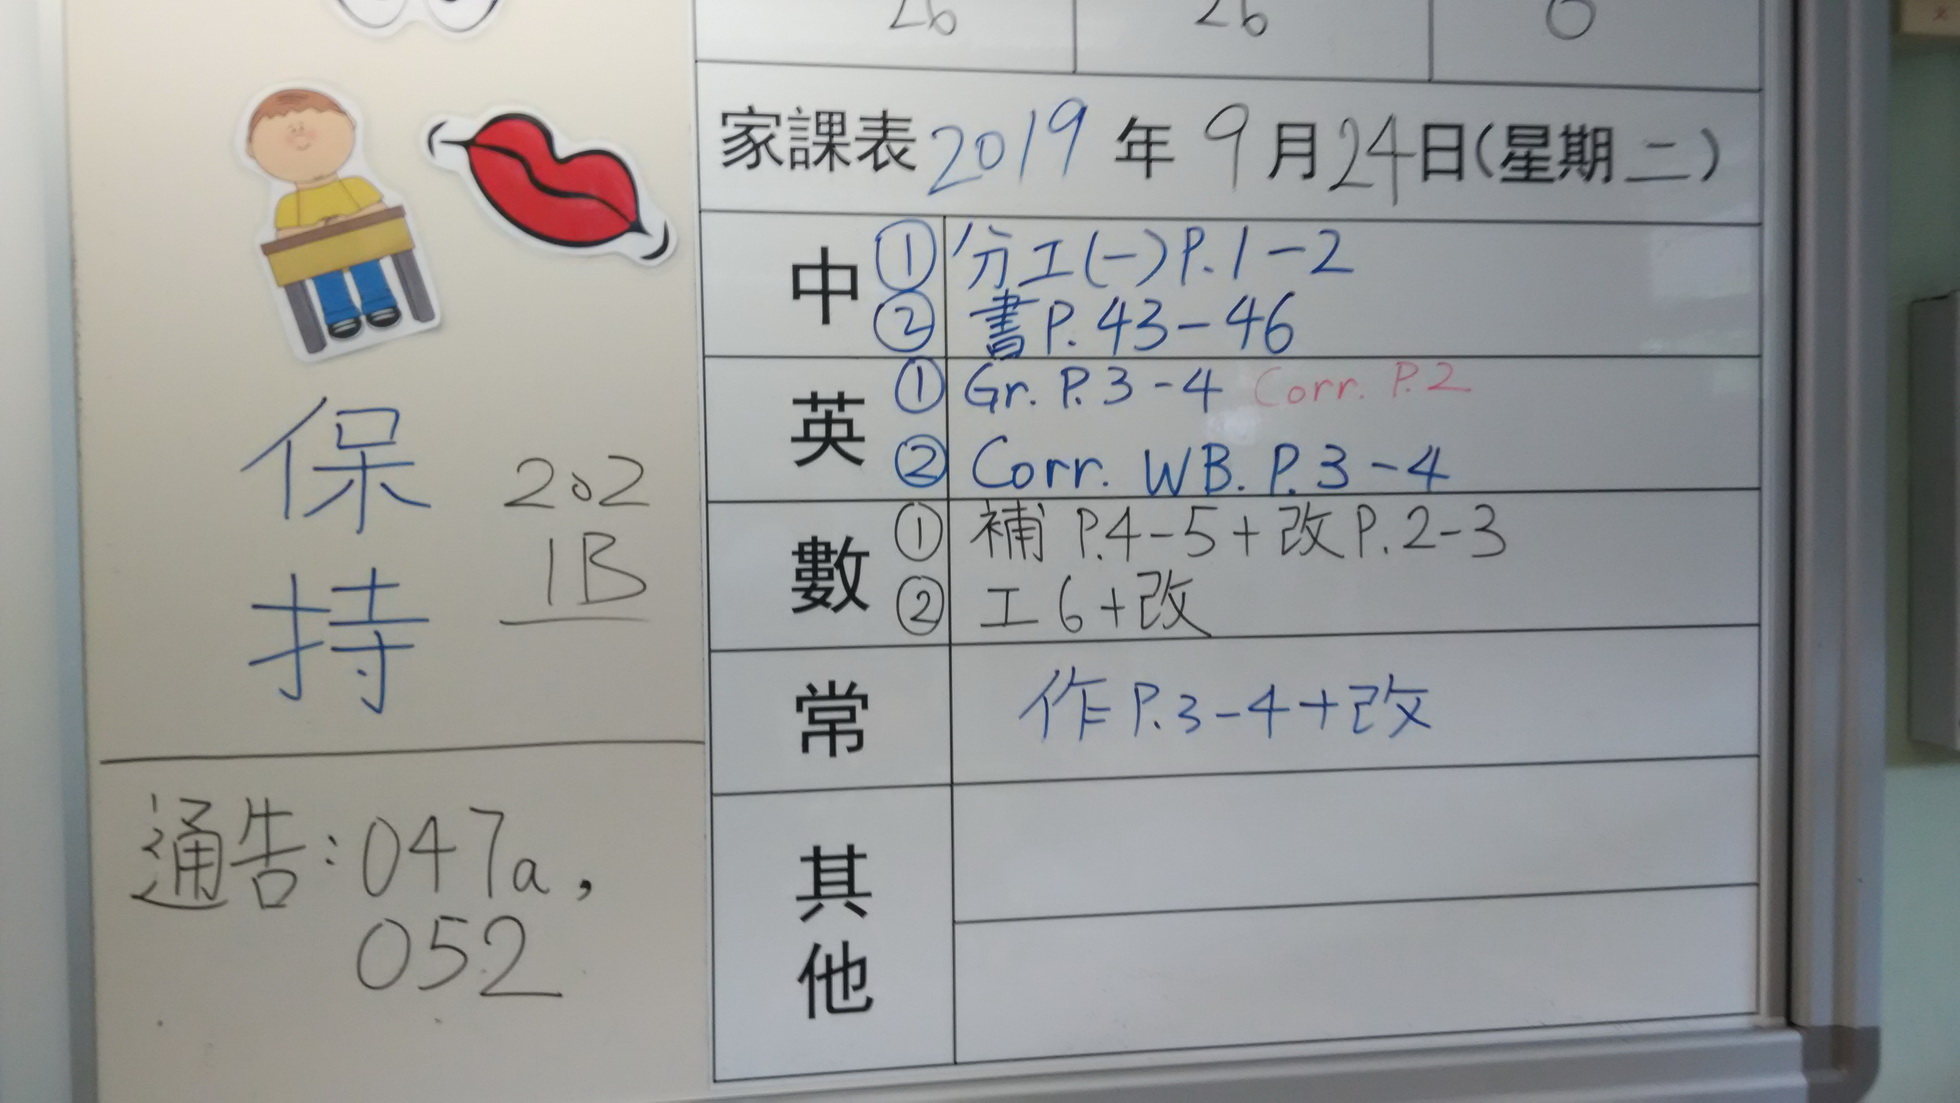 26 26 0
家課表 2019 年 9 月 24 日(星期二)
中 ① 分工(一) P.1-2
② 書 P.43-46
英 ① Gr. P.3-4 Corr. P.2
② Corr. WB. P.3-4
數 ① 補 P.4-5+改 P.2-3
② 工6+改
常 作 P.3-4+改
其他
保持
202
1B
通告:047a,
052